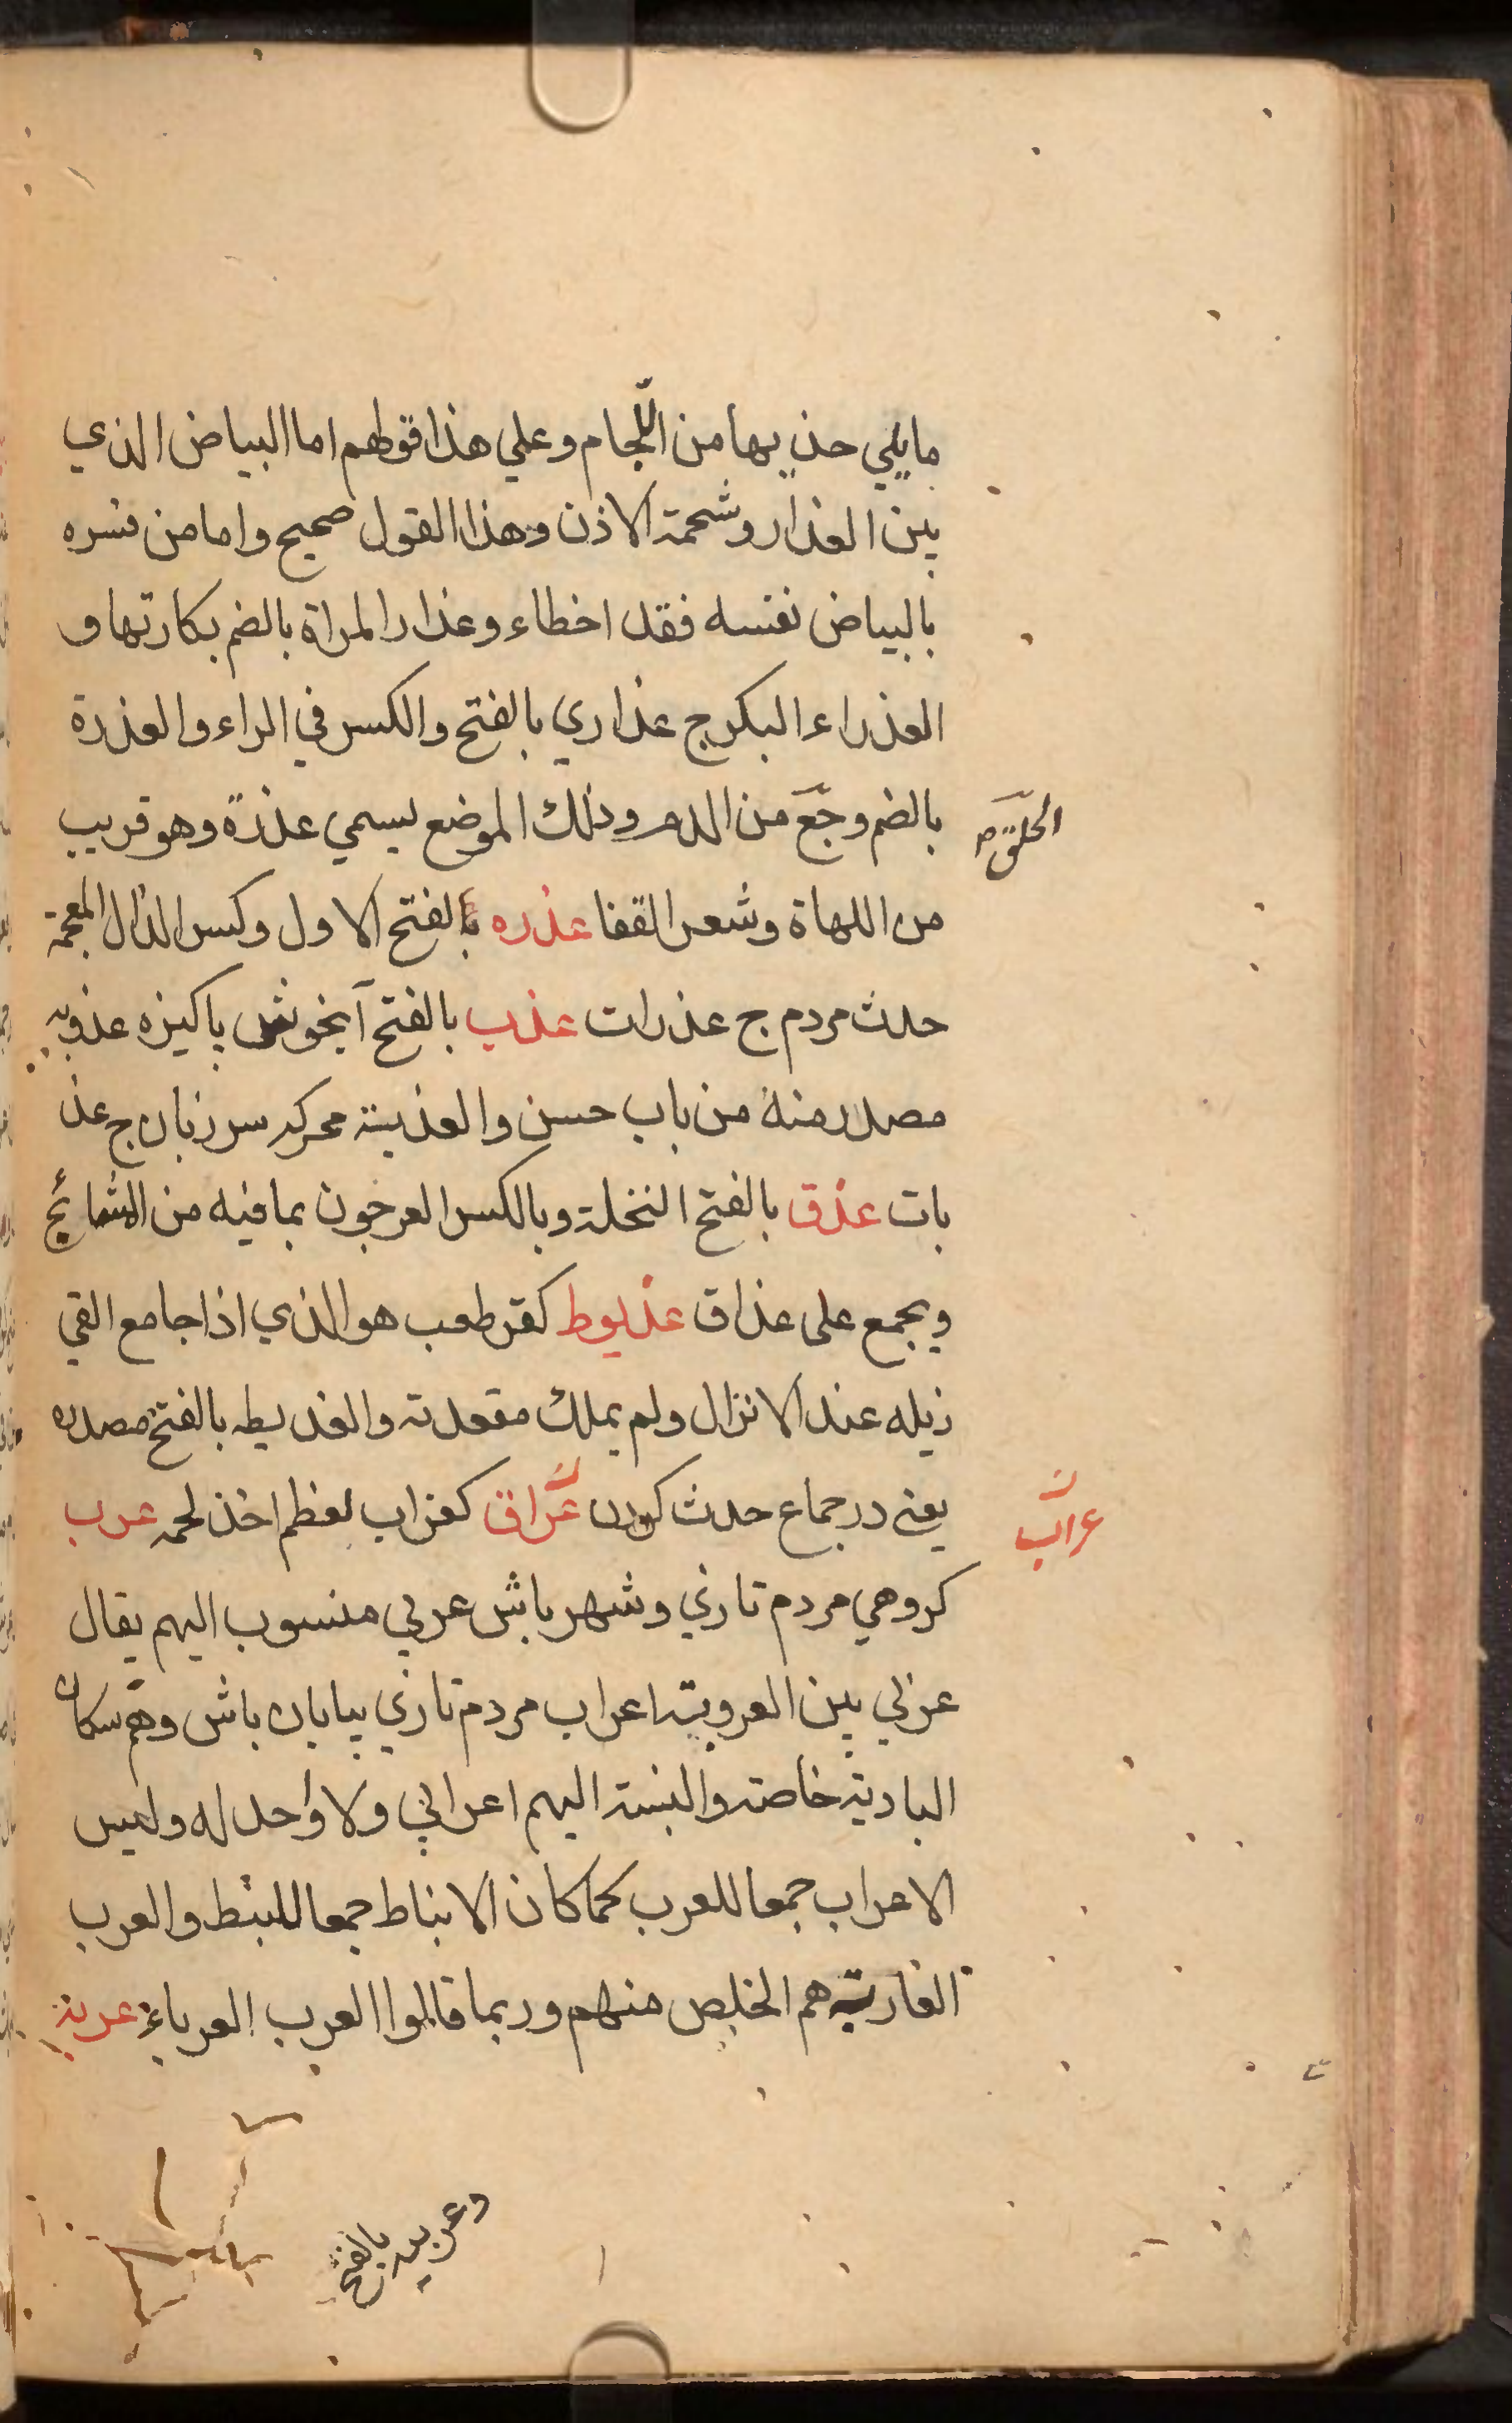 مايلي حذيها من اللّجام وعلي هذا قولهم اما البياض الذي
بين العذار وشحمة الاذن وهذا القول صحيح واما من فسره
بالبياض نفسه فقد اخطاء وعذار المراة بالضم بكارتها و
العذراء البكر ج عذاري بالفتح والكسر في الراء والعذرة
بالضم وجَع من الدم وذلك الموضع يسمي عذرة وهو قريب
الحلق
من اللهاة وشعر القفا عذره بالفتح الاول وكسر الذال المعجمة
حدث مردم ج عذرات عذب بالفتح آبخوش پاكيزه عذوبه
مصدر منه من باب حسن والعذبة محركه سر زبان ج عذ
بات عذق بالفتح النخلة وبالكسر العرجون بمافيه من الشمائج
ويجمع على عذاق عذيوط كقرطعب هو الذي اذا جامع القي
زبله عند الانزال ولم يملك مقعدته والعذيطه بالفتح مصدره
يعني در جماع حدث كردن عراق كغراب لعظم اخذ لحمه عرب
عراب
كروهي مردم تازي وشهر باش عربي منسوب اليهم يقال
عربي بين العروبة اعراب مردم تازي بيابان باش وهم سكان
البادية خاصة والنسبة اليهم اعرابي ولا واحد له وليس
الاعراب جمعا للعرب كما كان الانباط جمعا للنبط والعرب
العاربة هم الخلص منهم وربما قالوا العرب العرباء عربة
وعربيه بالفتح